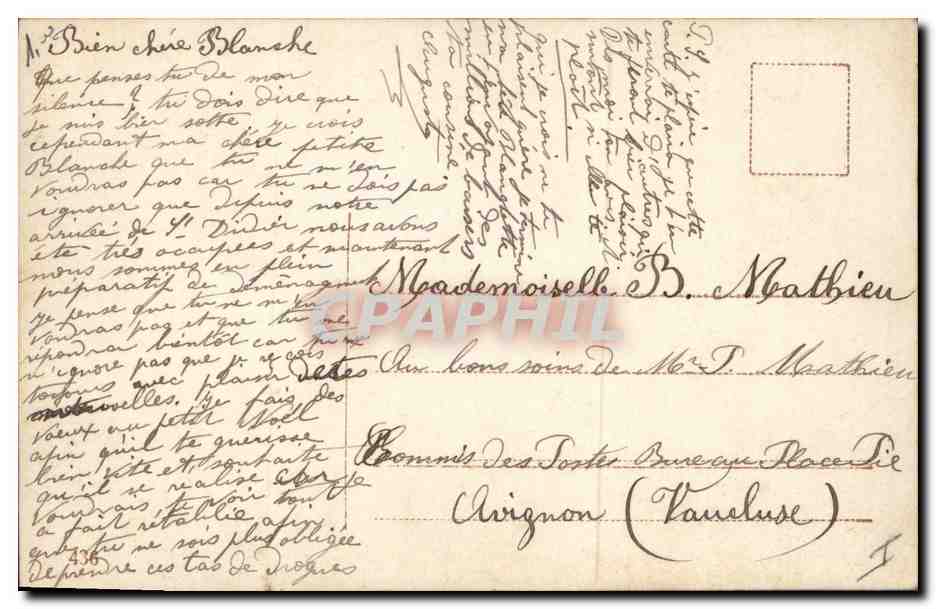 Bien chére Blanche
Que penses tu de mon
silence ? tu dois dire que
je suis bien sotte, je crois
cependant ma chére petite
Blanche que tu ne m'en
voudras pas car tu ne dois pas
ignorer que depuis notre
arrivée de St Didier nous avons
été très occupées et maintenant
nous sommes en plein
préparatif de déménagement
je pense que tu ne m'en
voudras pas et que tu me
répondras bientôt car tu
n'ignore pas que je reçois
toujours avec plaisir de tes
nouvelles. Je fais des
voeux au petit Noël
afin qu'il te guerisse
bien vite et souhaite
qu'il se realise car je
voudrais te voir tout
a fait rétablie afin
que tu ne sois plus obligée
de prendre ces tas de drogues
436
qui je crois ne te
plaisent guère je termine
ma petite Blanchette
en t'envoyant des
milliers de baisers
ta cousine
Augusta
P. S. J'espère que cette
carte te plaira je t'en
enverrai d'autres si
te feront bien plaisir
Dis moi ton avis et
surtout si elle te
plaît
Mademoiselle B. Mathieu
Aux bons soins de Mr P. Mathieu
Commis des Postes Bureau Place Pie
Avignon (Vaucluse)
I
CPAPHIL